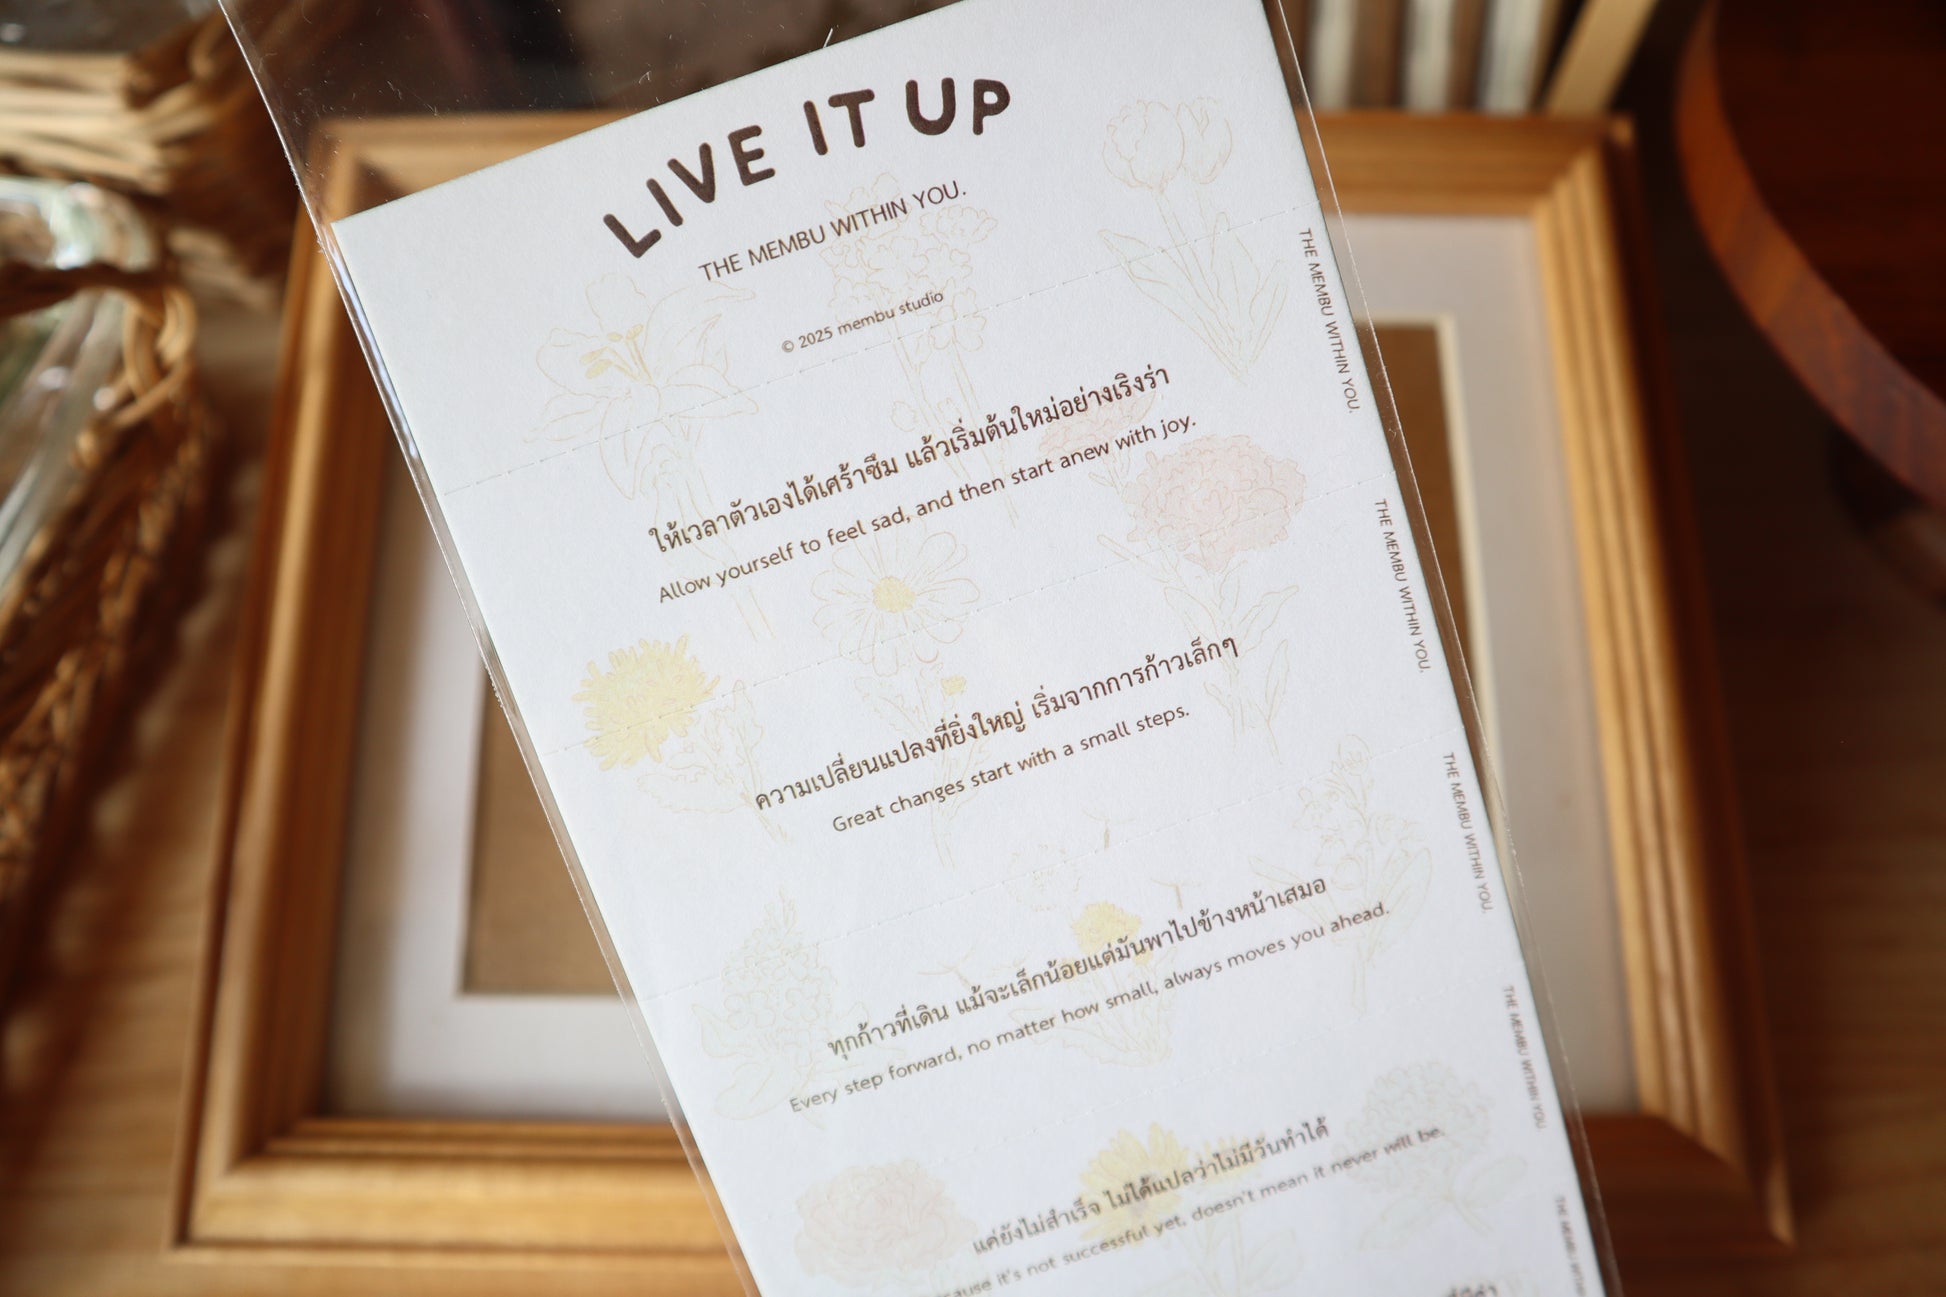 LIVE IT UP
THE MEMBU WITHIN YOU.
© 2025 membu studio
ให้เวลาตัวเองได้เศร้าซึม แล้วเริ่มต้นใหม่อย่างเริงร่า
Allow yourself to feel sad, and then start anew with joy.
THE MEMBU WITHIN YOU.
ความเปลี่ยนแปลงที่ยิ่งใหญ่ เริ่มจากการก้าวเล็กๆ
Great changes start with a small steps.
THE MEMBU WITHIN YOU.
ทุกก้าวที่เดิน แม้จะเล็กน้อยแต่มันพาไปข้างหน้าเสมอ
Every step forward, no matter how small, always moves you ahead.
THE MEMBU WITHIN YOU.
แค่ยังไม่สำเร็จ ไม่ได้แปลว่าไม่มีวันทำได้
it's not successful yet, doesn't mean it never will be.
THE MEMBU WITHIN YOU.
THE MEMBU WITHIN